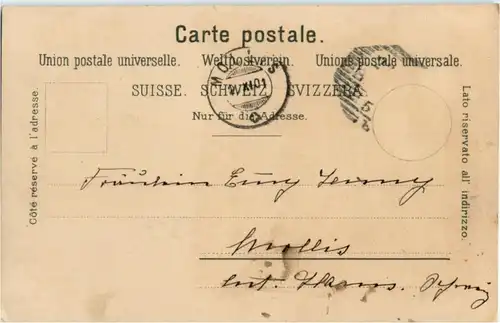 Carte postale.
Union postale universelle. Weltpostverein. Unione postale universale.
SUISSE. SCHWEIZ. SVIZZERA.
Nur für die Adresse.
Côté réservé à l'adresse.
Lato riservato all' indirizzo.
MOLLIS
XI.01
Fräulein Emy Jenny
Mollis
Ct. Glarus. Schweiz